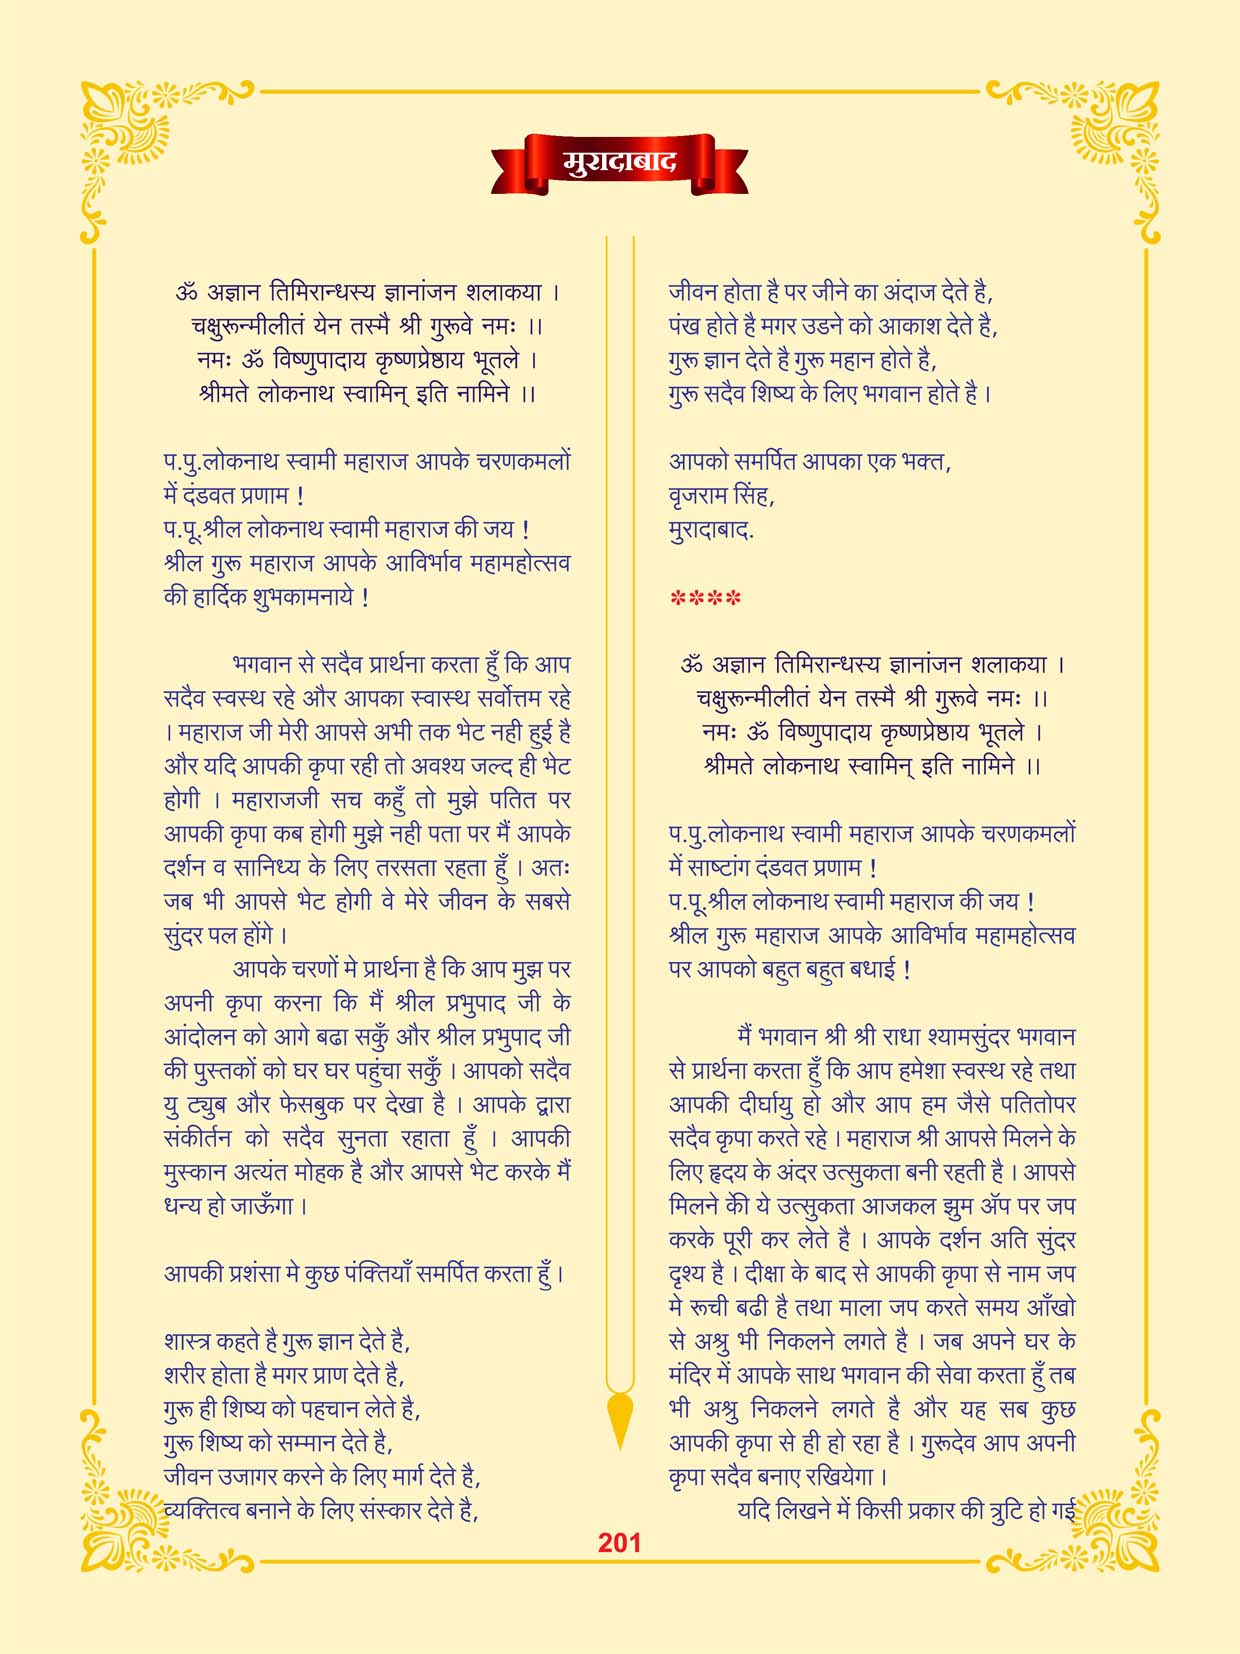 मुरादाबाद
ॐ अज्ञान तिमिरान्धस्य ज्ञानांजन शलाकया ।
चक्षुरून्मीलीतं येन तस्मै श्री गुरूवे नमः ।।
नमः ॐ विष्णुपादाय कृष्णप्रेष्ठाय भूतले ।
श्रीमते लोकनाथ स्वामिन् इति नामिने ।।
प.पु.लोकनाथ स्वामी महाराज आपके चरणकमलों
में दंडवत प्रणाम !
प.पू.श्रील लोकनाथ स्वामी महाराज की जय !
श्रील गुरू महाराज आपके आविर्भाव महामहोत्सव
की हार्दिक शुभकामनाये !
भगवान से सदैव प्रार्थना करता हुँ कि आप
सदैव स्वस्थ रहे और आपका स्वास्थ सर्वोत्तम रहे
। महाराज जी मेरी आपसे अभी तक भेट नही हुई है
और यदि आपकी कृपा रही तो अवश्य जल्द ही भेट
होगी । महाराजजी सच कहुँ तो मुझे पतित पर
आपकी कृपा कब होगी मुझे नही पता पर मैं आपके
दर्शन व सानिध्य के लिए तरसता रहता हुँ । अतः
जब भी आपसे भेट होगी वे मेरे जीवन के सबसे
सुंदर पल होंगे ।
आपके चरणों मे प्रार्थना है कि आप मुझ पर
अपनी कृपा करना कि मैं श्रील प्रभुपाद जी के
आंदोलन को आगे बढा सकुँ और श्रील प्रभुपाद जी
की पुस्तकों को घर घर पहुंचा सकुँ । आपको सदैव
यु ट्युब और फेसबुक पर देखा है । आपके द्वारा
संकीर्तन को सदैव सुनता रहाता हुँ । आपकी
मुस्कान अत्यंत मोहक है और आपसे भेट करके मैं
धन्य हो जाऊँगा ।
आपकी प्रशंसा मे कुछ पंक्तियाँ समर्पित करता हुँ ।
शास्त्र कहते है गुरू ज्ञान देते है,
शरीर होता है मगर प्राण देते है,
गुरू ही शिष्य को पहचान लेते है,
गुरू शिष्य को सम्मान देते है,
जीवन उजागर करने के लिए मार्ग देते है,
व्यक्तित्व बनाने के लिए संस्कार देते है,
जीवन होता है पर जीने का अंदाज देते है,
पंख होते है मगर उडने को आकाश देते है,
गुरू ज्ञान देते है गुरू महान होते है,
गुरू सदैव शिष्य के लिए भगवान होते है ।
आपको समर्पित आपका एक भक्त,
वृजराम सिंह,
मुरादाबाद.
****
ॐ अज्ञान तिमिरान्धस्य ज्ञानांजन शलाकया ।
चक्षुरून्मीलीतं येन तस्मै श्री गुरूवे नमः ।।
नमः ॐ विष्णुपादाय कृष्णप्रेष्ठाय भूतले ।
श्रीमते लोकनाथ स्वामिन् इति नामिने ।।
प.पु.लोकनाथ स्वामी महाराज आपके चरणकमलों
में साष्टांग दंडवत प्रणाम !
प.पू.श्रील लोकनाथ स्वामी महाराज की जय !
श्रील गुरू महाराज आपके आविर्भाव महामहोत्सव
पर आपको बहुत बहुत बधाई !
मैं भगवान श्री श्री राधा श्यामसुंदर भगवान
से प्रार्थना करता हुँ कि आप हमेशा स्वस्थ रहे तथा
आपकी दीर्घायु हो और आप हम जैसे पतितोपर
सदैव कृपा करते रहे । महाराज श्री आपसे मिलने के
लिए हृदय के अंदर उत्सुकता बनी रहती है । आपसे
मिलने केी ये उत्सुकता आजकल झुम ॲप पर जप
करके पूरी कर लेते है । आपके दर्शन अति सुंदर
दृश्य है । दीक्षा के बाद से आपकी कृपा से नाम जप
मे रूची बढी है तथा माला जप करते समय आँखो
से अश्रु भी निकलने लगते है । जब अपने घर के
मंदिर में आपके साथ भगवान की सेवा करता हुँ तब
भी अश्रु निकलने लगते है और यह सब कुछ
आपकी कृपा से ही हो रहा है । गुरूदेव आप अपनी
कृपा सदैव बनाए रखियेगा ।
यदि लिखने में किसी प्रकार की त्रुटि हो गई
201